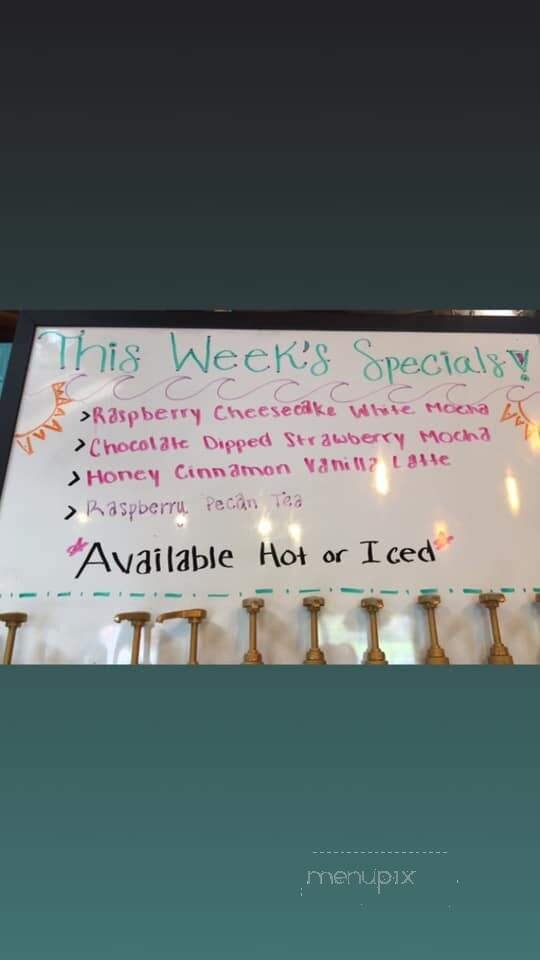 This Week's Specials!
>Raspberry Cheesecake White Mocha
>Chocolate Dipped Strawberry Mocha
>Honey Cinnamon Vanilla Latte
>Raspberry Pecan Tea
*Available Hot or Iced*
menupix